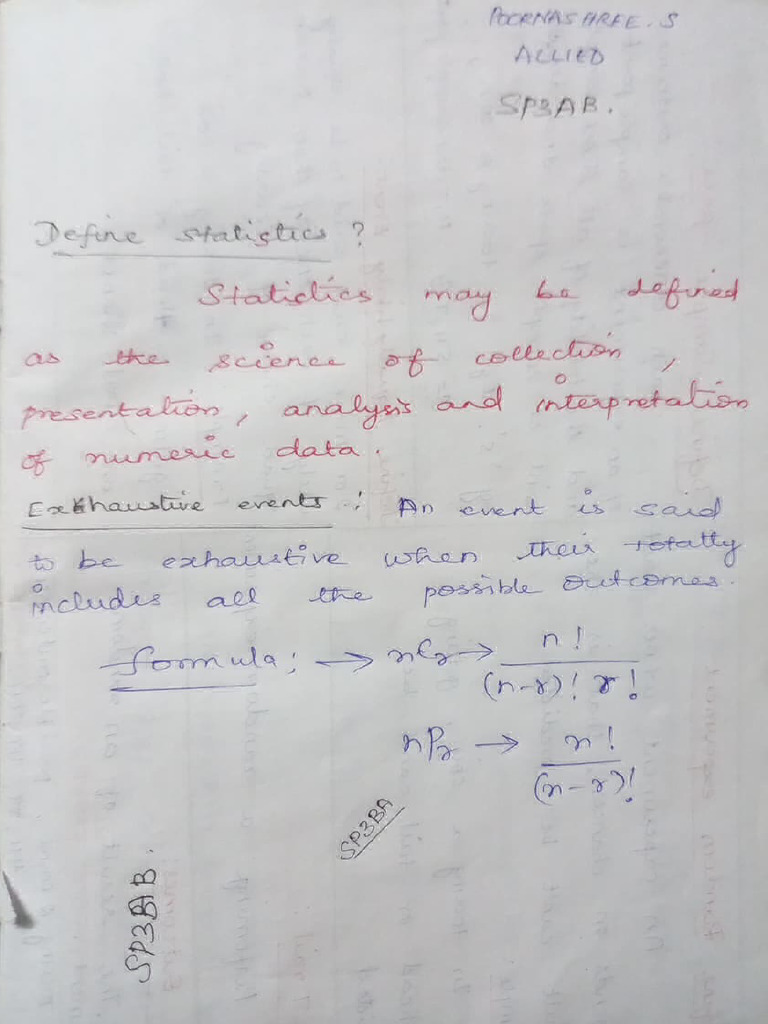 POORNASHREE. S
ALLIED
SP3AB.
Define statistics ?
Statistics may be defined
as the science of collection ,
presentation, analysis and interpretation
of numeric data.
Exhaustive events : An event is said
to be exhaustive when their totally
includes all the possible outcomes.
formula; → nCr → n! / (n-r)! r!
nPr → n! / (n-r)!
SP3BA
SP3AB.